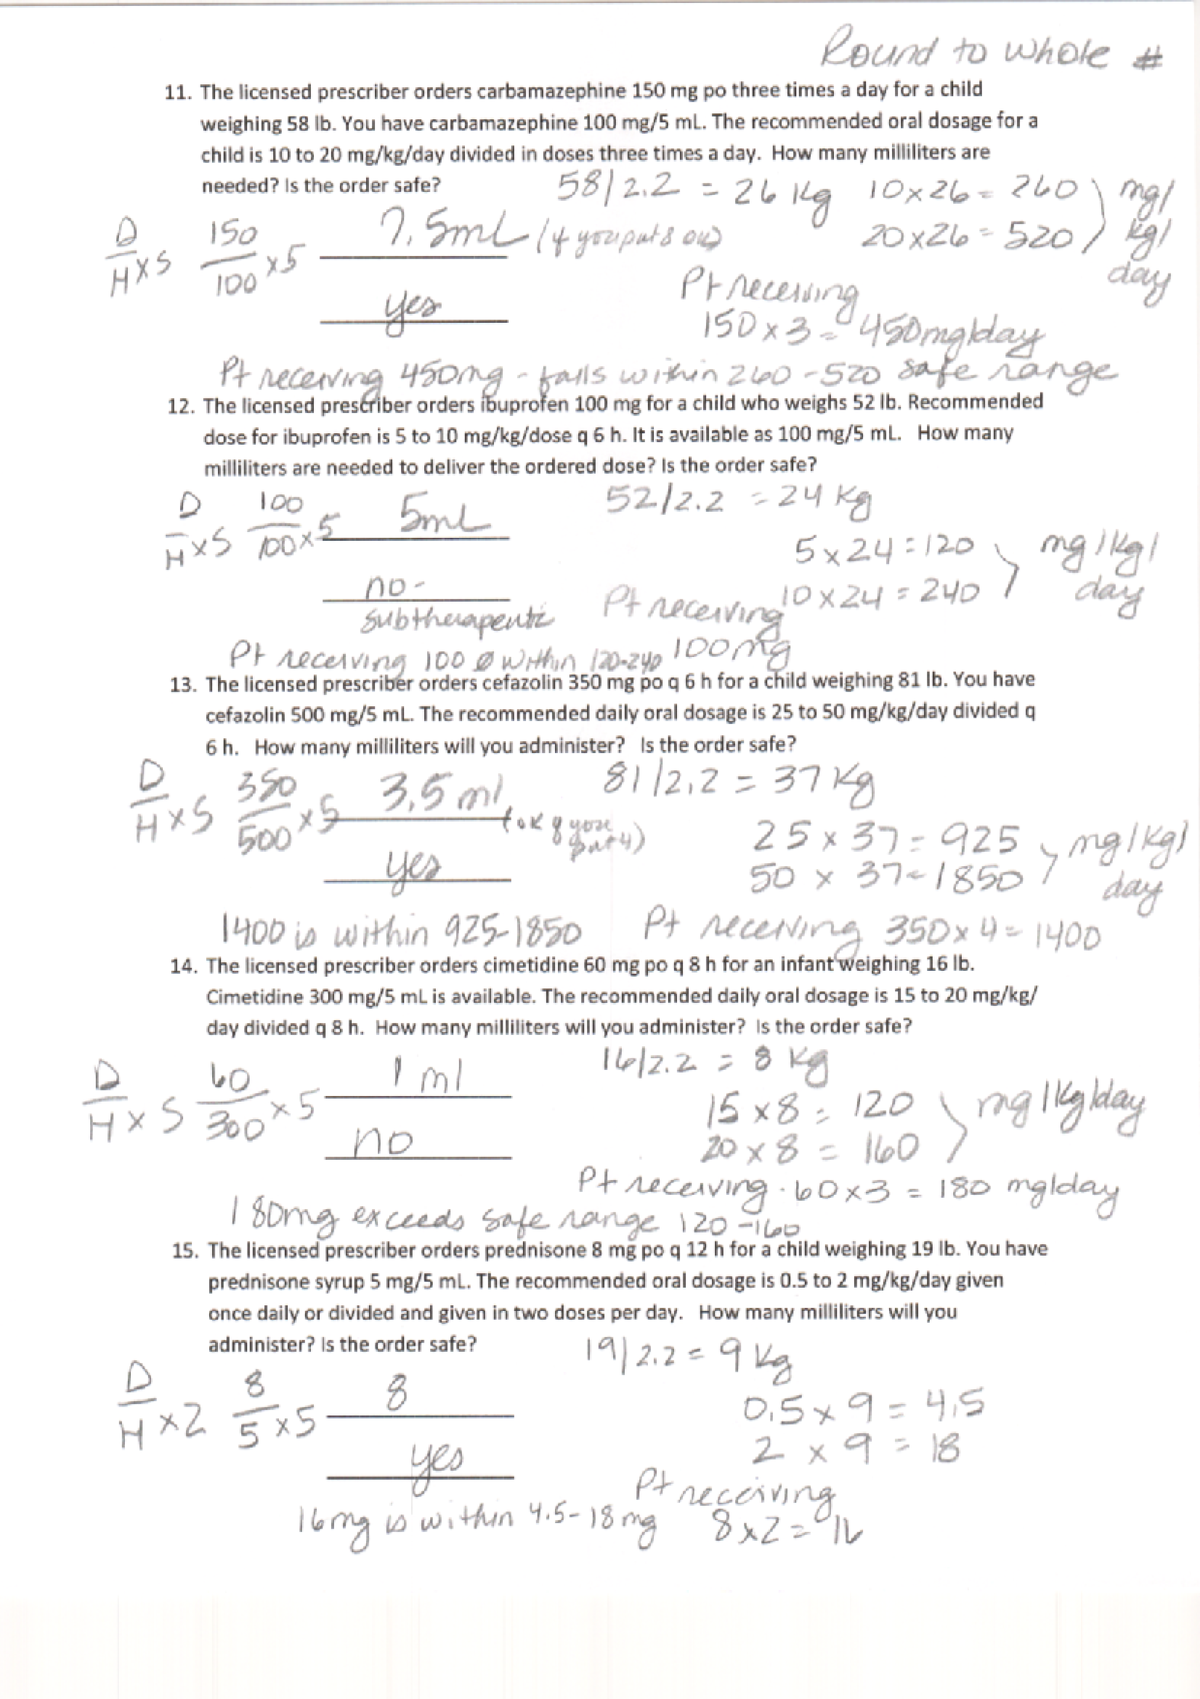 Round to whole #
11. The licensed prescriber orders carbamazephine 150 mg po three times a day for a child
weighing 58 lb. You have carbamazephine 100 mg/5 mL. The recommended oral dosage for a
child is 10 to 20 mg/kg/day divided in doses three times a day. How many milliliters are
needed? Is the order safe?
58/2.2 = 26 Kg
10x26= 260
20x26= 520
mg/
kg/
day
D
H x5
150
100 x5
7.5mL (if you put 8 ok)
yes
Pt receiving
150 x 3 = 450mg/day
Pt receiving 450mg - falls within 260-520 safe range
12. The licensed prescriber orders ibuprofen 100 mg for a child who weighs 52 lb. Recommended
dose for ibuprofen is 5 to 10 mg/kg/dose q 6 h. It is available as 100 mg/5 mL. How many
milliliters are needed to deliver the ordered dose? Is the order safe?
D
H x5
100
100 x 5
5mL
52/2.2 = 24 Kg
5 x 24 = 120
10 x 24 = 240
mg/kg/
day
no -
subtherapeutic
Pt receiving
100mg
Pt receiving 100 Ø within 120-240
13. The licensed prescriber orders cefazolin 350 mg po q 6 h for a child weighing 81 lb. You have
cefazolin 500 mg/5 mL. The recommended daily oral dosage is 25 to 50 mg/kg/day divided q
6 h. How many milliliters will you administer? Is the order safe?
D
H x5
350
500 x5
3.5 ml
(ok if you put 4)
81/2.2 = 37 Kg
25 x 37 = 925
50 x 37 = 1850
mg/kg/
day
yes
1400 is within 925-1850
Pt receiving 350x4= 1400
14. The licensed prescriber orders cimetidine 60 mg po q 8 h for an infant weighing 16 lb.
Cimetidine 300 mg/5 mL is available. The recommended daily oral dosage is 15 to 20 mg/kg/
day divided q 8 h. How many milliliters will you administer? Is the order safe?
D
H x 5
60
300 x 5
1 ml
16/2.2 = 8 Kg
15 x8 = 120
20 x 8 = 160
mg/Kg/day
no
Pt receiving 60x3 = 180 mg/day
180mg exceeds safe range 120-160
15. The licensed prescriber orders prednisone 8 mg po q 12 h for a child weighing 19 lb. You have
prednisone syrup 5 mg/5 mL. The recommended oral dosage is 0.5 to 2 mg/kg/day given
once daily or divided and given in two doses per day. How many milliliters will you
administer? Is the order safe?
19/2.2 = 9 Kg
D
H x2
8
5 x5
8
0.5 x 9 = 4.5
2 x 9 = 18
yes
Pt receiving
8 x2 = 16
16mg is within 4.5-18mg